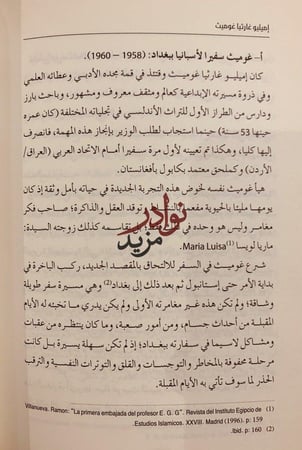 إميليو غارثيا غوميث
أ- غوميث سفيرا لأسبانيا ببغداد: (1958 – 1960).
كان إميليو غارثيا غوميث وقتئذ في قمة مجده الأدبي وعطائه العلمي
وفي ذروة مسيرته الإبداعية كعالم ومثقف معروف ومشهور، وباحث بارز
ودارس من الطراز الأول للتراث الأندلسي في تجلياته المختلفة (كان عمره
حينها 53 سنة) حينما استجاب لطلب الوزير بإنجاز هذه المهمة، فانصرف
إليها كليا، وهكذا تم تعيينه لأول مرة سفيرا أمام الاتحاد العربي (العراق/
الأردن) وكملحق معتمد بكابول بأفغانستان.
هيأ غوميث نفسه لخوض هذه التجربة الجديدة في حياته بأمل وثقة إذ كان
يومها مليئا بالحيوية مفعما توقد العقل والذاكرة؛ صاحب فكر
مغامر وليس هو وحده في تقاسمه كذلك زوجته السيدة:
ماريا لويسا Maria Luisa(1)
شرع غوميث في السفر للالتحاق بالمقصد الجديد، ركب الباخرة في
بداية الأمر حتى إستانبول ثم بعد ذلك إلى بغداد(2) وهي مسيرة سفر طويلة
وشاقة؛ ولم تكن هذه غير مغامرته الأولى ولم يكن يدري ما تخبئه له الأيام
المقبلة من أحداث جسام، ومن أمور صعبة، وما كان ينتظره من عقبات
ومشاكل لاسيما في سفارته ببغداد؛ إذ لم تكن سهلة يسيرة بل كانت
مرحلة محفوفة بالمخاطر والتوجسات والقلق والتوترات النفسية والترقب
الحذر لما سوف تأتي به الأيام المقبلة.
(1) Villanueva. Ramon: "La primera embajada del profesor E. G. G". Revista del Instituto Egipcio de
Estudios Islamicos. XXVIII. Madrid (1996). p: 159.
(2) Ibid. p: 160.
نوادر
مزيد